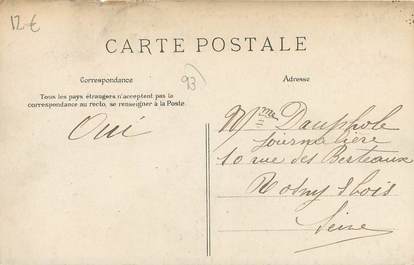 12 €
CARTE POSTALE
Correspondance
93)
Adresse
Tous les pays étrangers n'acceptent pas la
correspondance au recto, se renseigner à la Poste.
Oui
Mme Dauphole
Journalière
10 rue des Berteaux
Rosny s bois
Seine